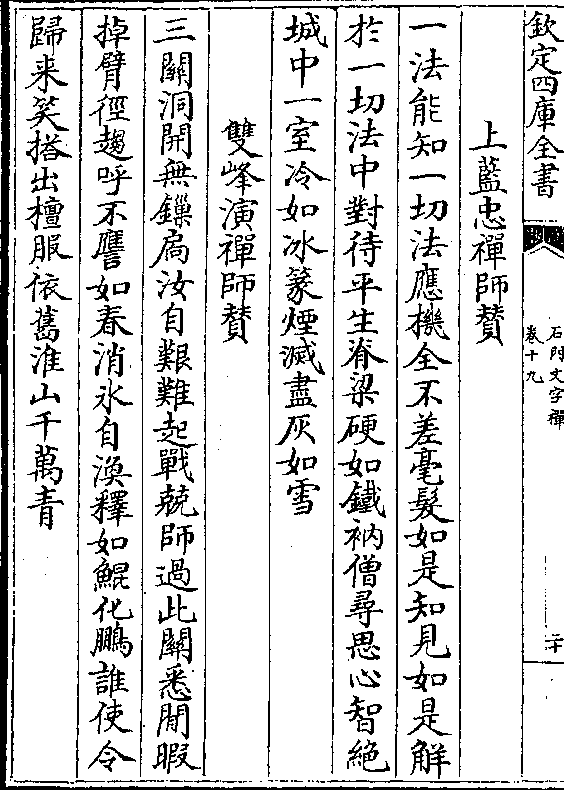 欽定四庫全書
石門文字禪
卷十九
二十
上藍忠禪師賛
一法能知一切法應機全不差毫髮如是知見如是解
扵一切法中對待平生脊梁硬如鐵衲僧尋思心智絶
城中一室冷如冰篆煙滅盡灰如雪
雙峰演禪師賛
三關洞開無鏁扄汝自艱難起戰兢師過此關悉閒暇
掉臂徑趨呼不譍如春消氷自渙釋如鯤化鵬誰使令
歸来笑搭出檀服依舊淮山千萬青